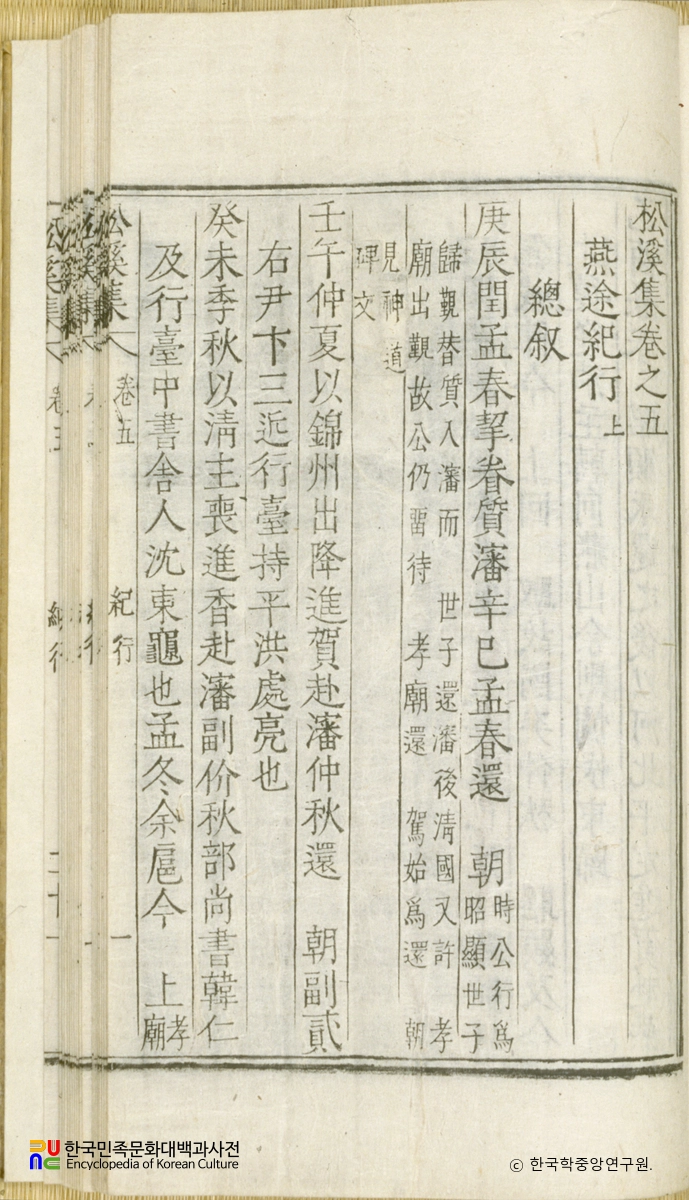 松溪集卷之五
燕途紀行上
總叙
庚辰閏孟春挈眷質瀋辛巳孟春還　朝時公行爲昭顯世子
歸覲替質入瀋而　世子還瀋後淸國又許　孝
廟出覲故公仍留待　孝廟還　駕始爲還　朝
見神道
碑文
壬午仲夏以錦州出降進賀赴瀋仲秋還　朝副貳
右尹卞三近行臺持平洪處亮也
癸未季秋以淸主喪進香赴瀋副价秋部尚書韓仁
及行臺中書舍人沈東龜也孟冬余扈今　上孝廟
松溪集
卷五
紀行
一
한국민족문화대백과사전
Encyclopedia of Korean Culture
© 한국학중앙연구원.